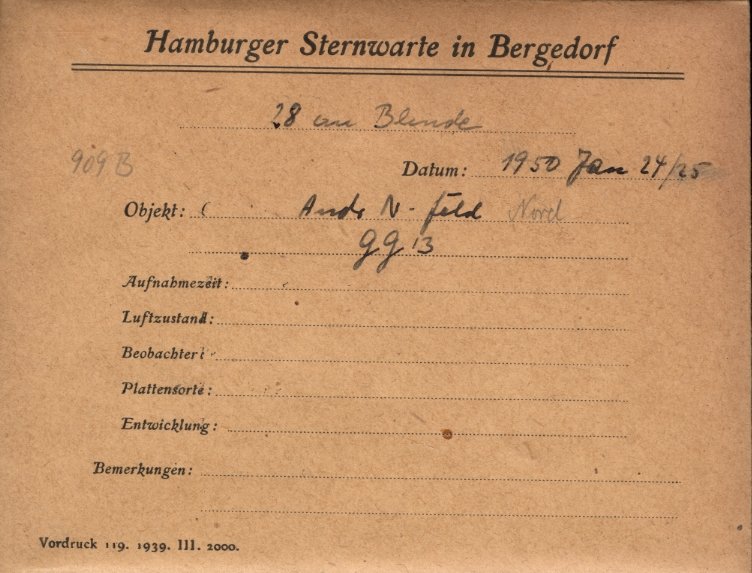 Hamburger Sternwarte in Bergedorf
28 cm Blende
909 B
Datum: 1950 Jan 24/25
Objekt: Andr N-feld Nord
GG 13
Aufnahmezeit:
Luftzustand:
Beobachter:
Plattensorte:
Entwicklung:
Bemerkungen:
Vordruck 119. 1939. III. 2000.